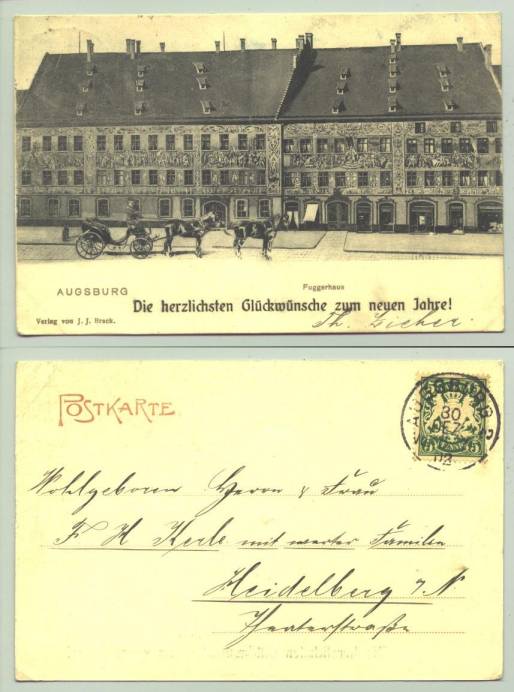 AUGSBURG
Fuggerhaus
Die herzlichsten Glückwünsche zum neuen Jahre!
Verlag von J. J. Brack.
Th.
POSTKARTE
AUGSBURG 2
30
DEZ
02
5 PFENNIG 5
Wohlgeboren Herrn & Frau
F H Kerle mit werter Familie
Heidelberg a/N
Theaterstraße